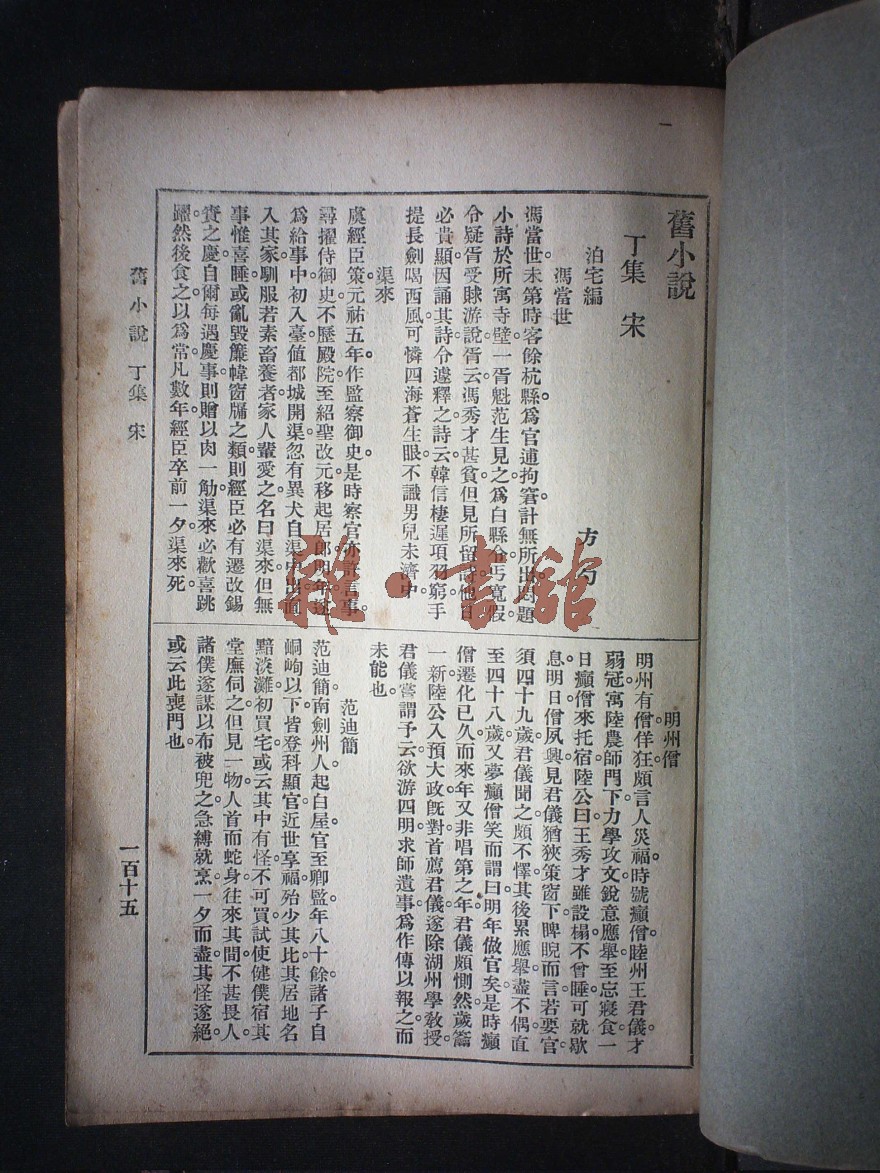 一
舊小說
丁集　宋
泊宅編
方勺
馮當世
馮當世未第時客餘杭縣爲官逋拘窘計無所出閒題
小詩於所寓寺壁一胥魁范生見之爲白縣令丐寬假
令疑胥受賕游說胥云馮秀才甚貧但見所留詩他日
必貴顯因誦其詩令遽釋之詩云韓信棲遲項羽窮手
提長劍喝西風可憐四海蒼生眼不識男兒未濟中
渠來
虞經臣策元祐五年作監察御史是時察官亦許言事
尋擢侍御史不歷殿院至紹聖改元移起居郎明年遂
爲給事中初入臺値都城開渠忽有異犬自渠中出直
入其家馴服若素畜養者家人輩愛之名曰渠來但無
事惟喜睡或亂毀簾幃窗牖之類則經臣必有遷改錫
賚之慶自爾每遇慶事則贈以肉一觔渠來必歡喜跳
躍然後食之以爲常凡數年經臣卒前一夕渠來死
明州僧
明州有僧佯狂頗言人災福時號癲僧睦州王君儀才
弱冠寓陸農師門下力學攻文銳意應舉至忘寢食一
日癲僧來托宿陸公曰王秀才雖設榻不曾睡可就歇
息明日僧夙興見君儀猶挾策窗下睥睨而言若要官
須四十九歲君儀聞之頗不懌其後累應舉盡不偶直
至四十八歲又夢癲僧笑而謂曰明年做官矣是時癲
僧遷化已久而來年又非唱第之年君儀頗惻然歲籥
一新陸公入預大政旣對首薦君儀遂除湖州學敎授
君儀嘗謂予云欲游四明求師遺事爲作傳以報之而
未能也
范迪簡
范迪簡南劍州人起白屋官至卿監年八十餘諸子自
峒峋以下皆登科顯官近世享福殆少其比其居地名
黯淡灘初買宅或云其中有怪不可買試使健僕宿其
堂廡伺之但見一物人首而蛇身往來其間不甚畏人
諸僕遂謀以布被兜之急縛就烹一夕而盡其怪遂絕
或云此喪門也
舊小說　丁集　宋
一百十五
雜·書館